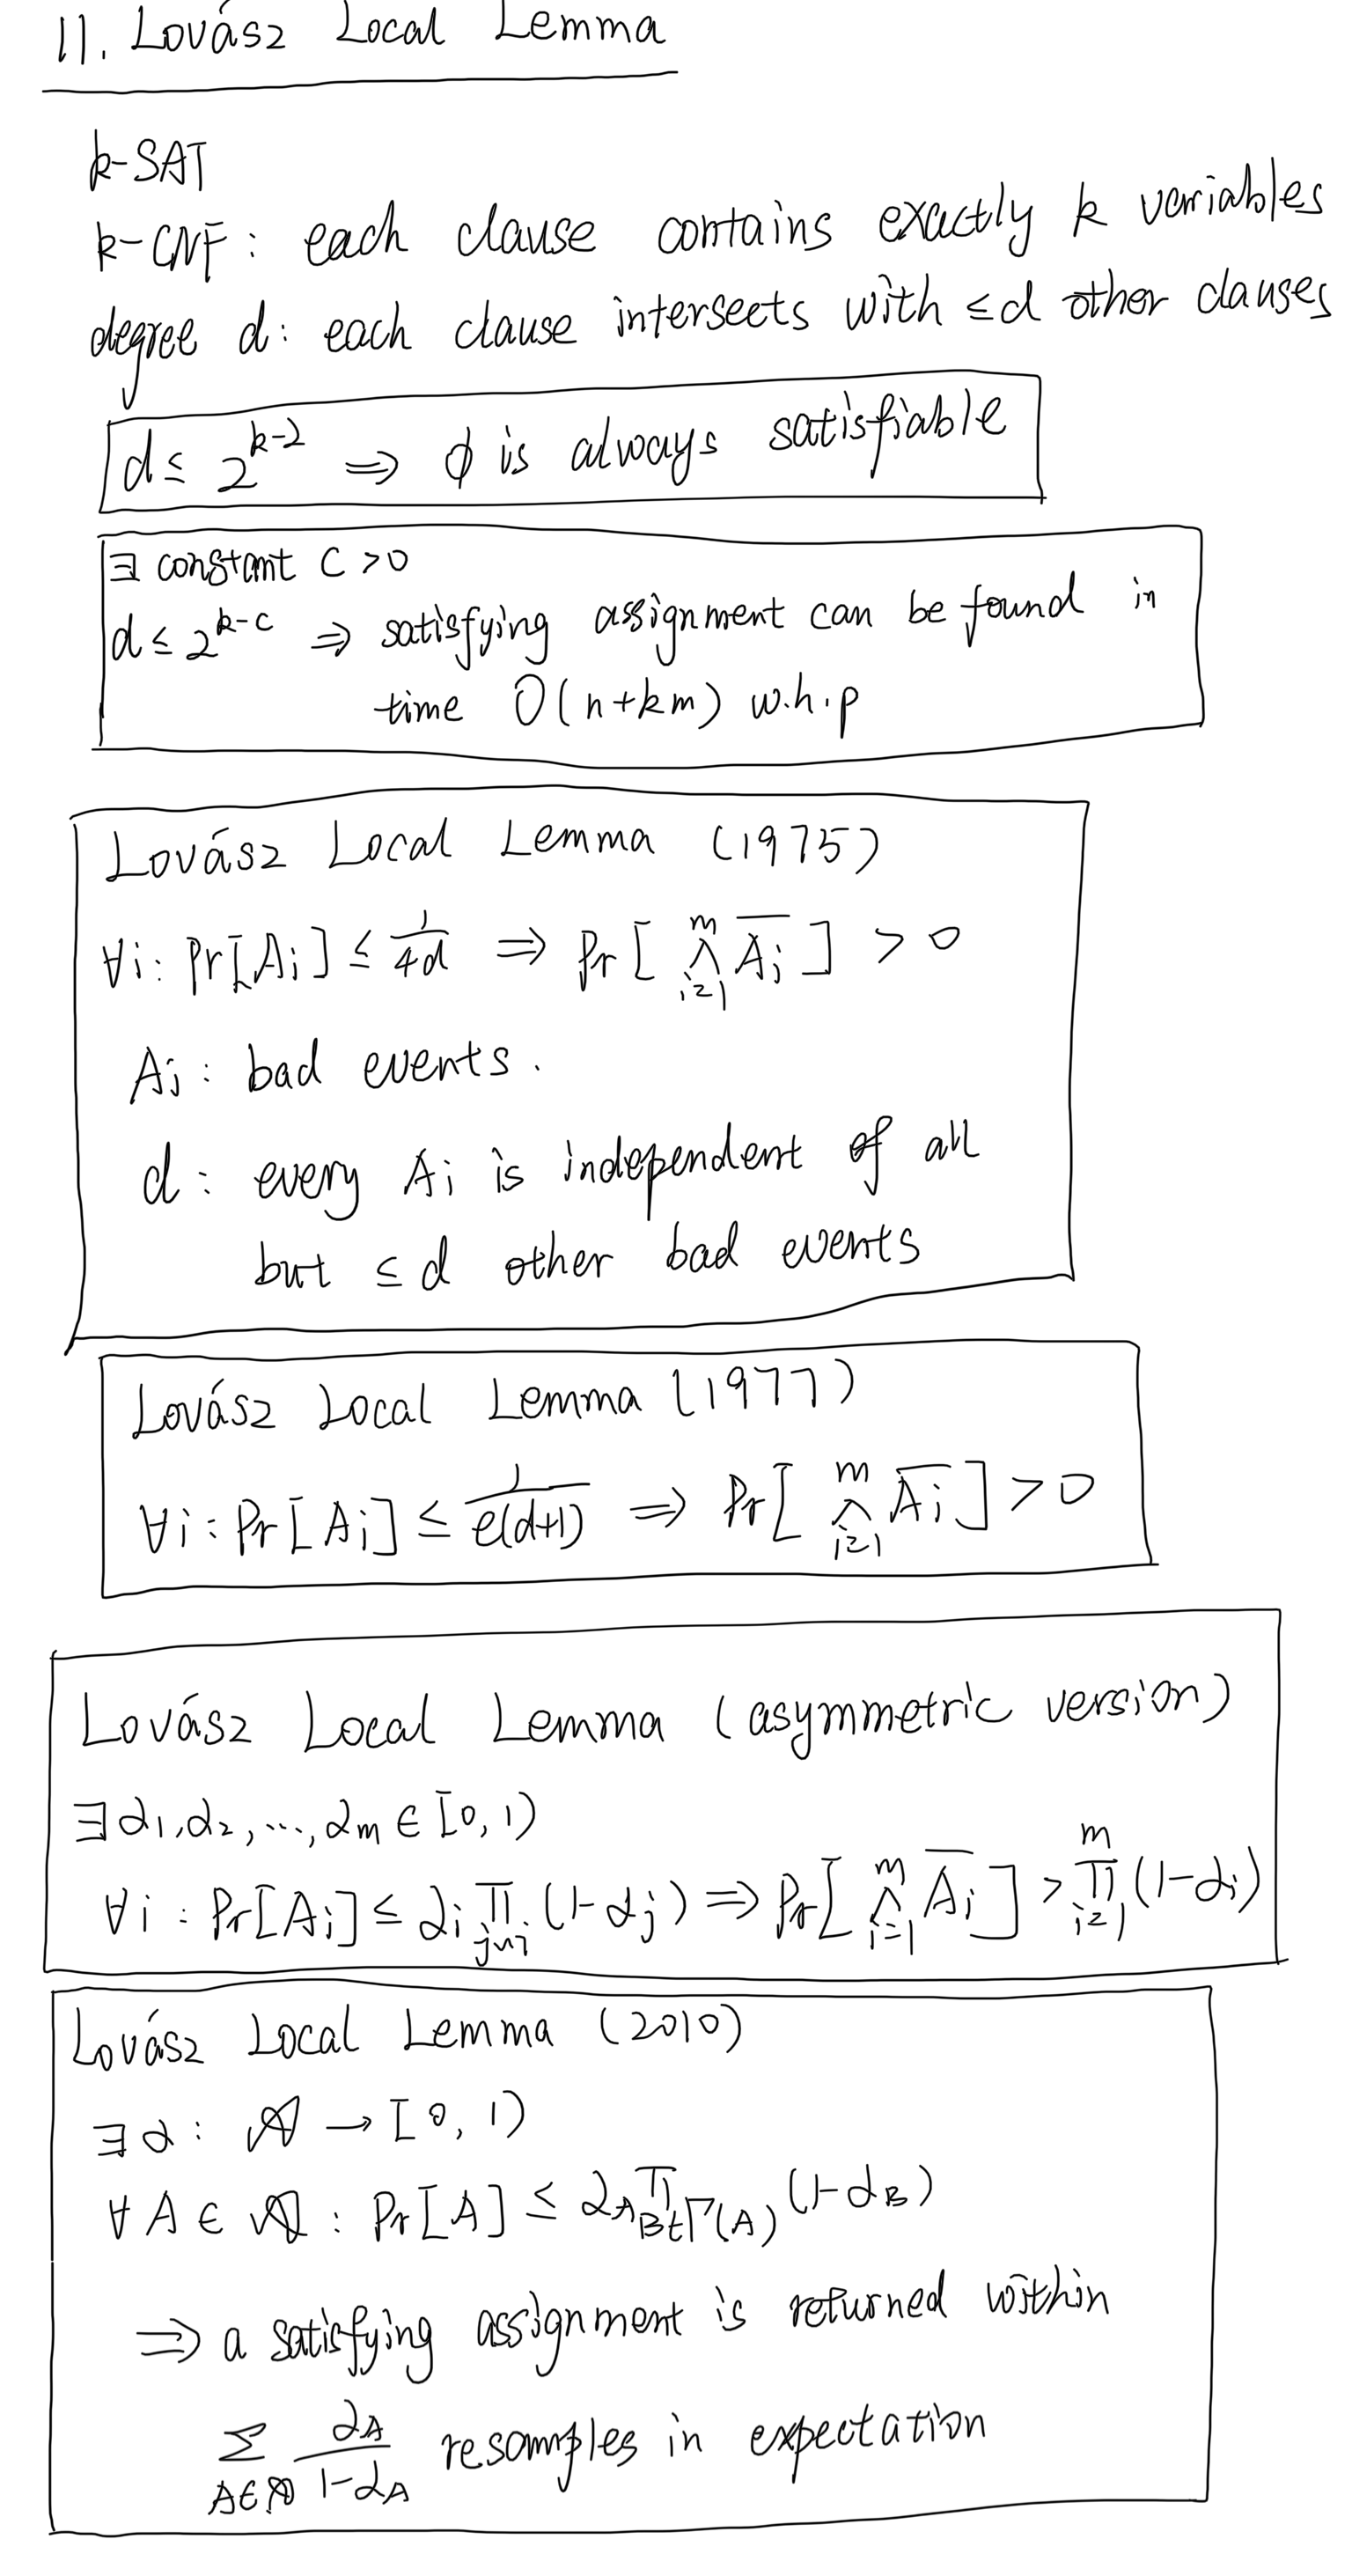 11. Lovász Local Lemma
k-SAT
k-CNF: each clause contains exactly k variables
degree d: each clause intersects with ≤d other clauses
d ≤ 2^{k-2} ⇒ ϕ is always satisfiable
∃ constant c>0
d ≤ 2^{k-c} ⇒ satisfying assignment can be found in
time O(n+km) w.h.p
Lovász Local Lemma (1975)
∀i: Pr[Ai] ≤ 1/4d ⇒ Pr[ ∧_{i=1}^{m} \overline{Ai} ] > 0
Ai: bad events.
d: every Ai is independent of all
but ≤d other bad events
Lovász Local Lemma (1977)
∀i: Pr[Ai] ≤ 1/e(d+1) ⇒ Pr[ ∧_{i=1}^{m} \overline{Ai} ] > 0
Lovász Local Lemma (asymmetric version)
∃α1,α2,...,αm ∈ [0,1)
∀i: Pr[Ai] ≤ αi ∏_{j~i} (1-αj) ⇒ Pr[ ∧_{i=1}^{m} \overline{Ai} ] > ∏_{i=1}^{m} (1-αi)
Lovász Local Lemma (2010)
∃α: 𝒜 → [0,1)
∀A∈𝒜: Pr[A] ≤ αA ∏_{B∈Γ(A)} (1-αB)
⇒ a satisfying assignment is returned within
∑_{A∈𝒜} αA/(1-αA) resamples in expectation